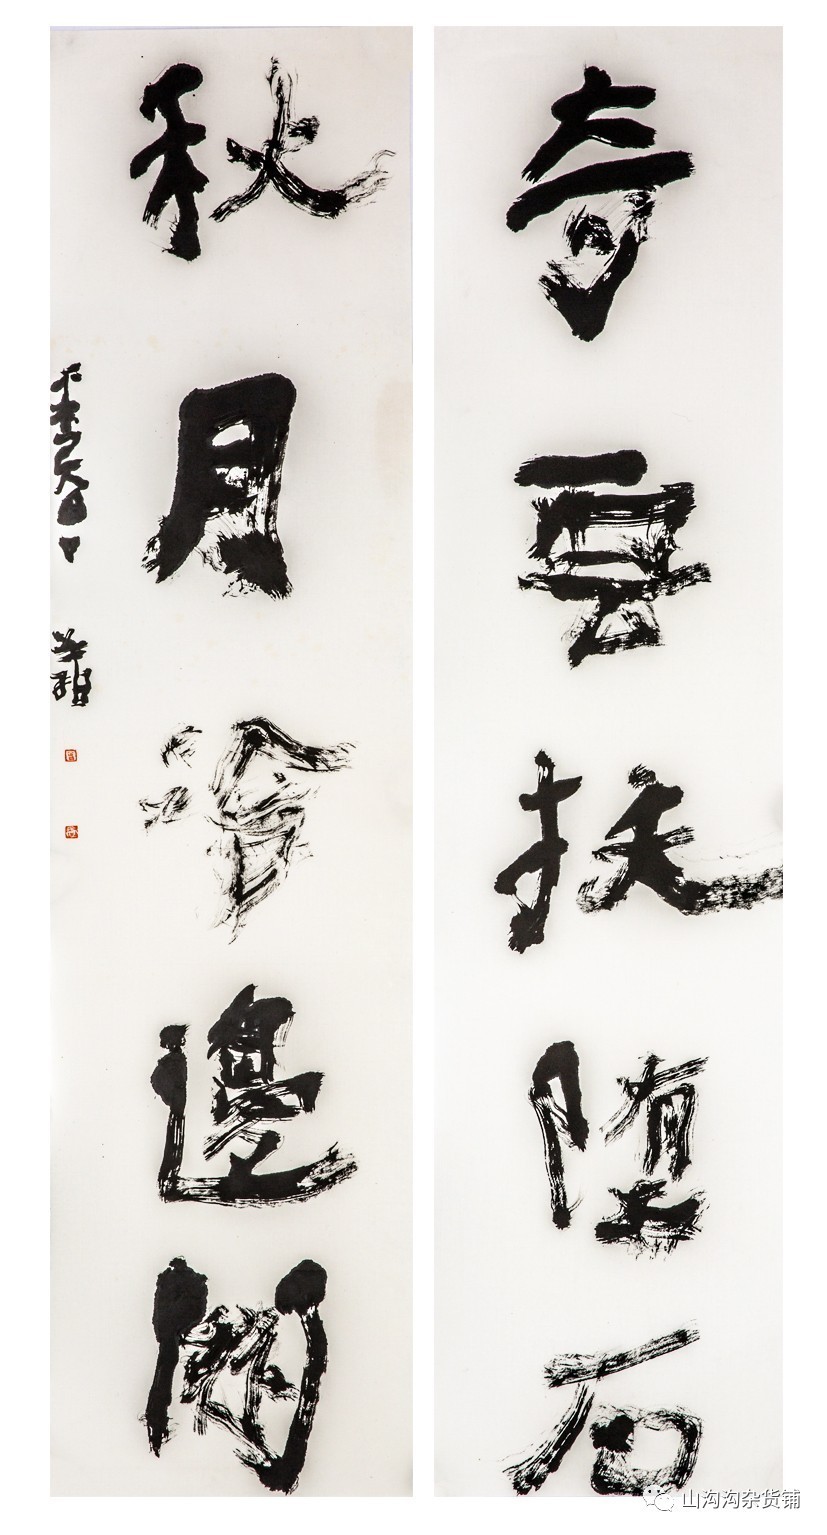 奇雲扶堕石
秋月冷邊關
山沟沟杂货铺